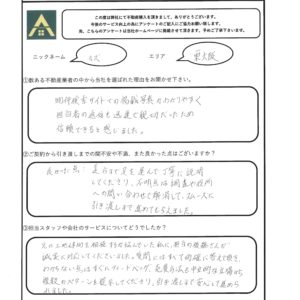 この度は弊社にて不動産購入を頂きまして、ありがとうございます。
今後のサービス向上の為にアンケートのご記入にご協力お願い致します。
尚、こちらのアンケートは当社ホームページに掲載させて頂きます。予めご了承下さいませ。
ニックネーム
エリア 東大阪
①数ある不動産業者の中から当社を選ばれた理由をお聞かせ下さい。
物件検索サイトでの掲載写真がわかりやすく
担当者の返信も迅速で親切だったため
信頼できると感じました。
②ご契約から引き渡しまでの間不安や不満、また良かった点はございますか？
良かった点：足を運んで丁寧に説明
してくださり、不明点は調査や役所
への問い合わせで解消して、スムーズに
引き渡しまで進めてもらえました。
③担当スタッフや会社のサービスについてどうでしたか？
誠実に対応してくださいました。質問にはすべて明確に答えて頂き、
わからない点はすぐにフィードバック、
複数のパターンを提示してくださり、引き渡しまで安心して進め
られました。